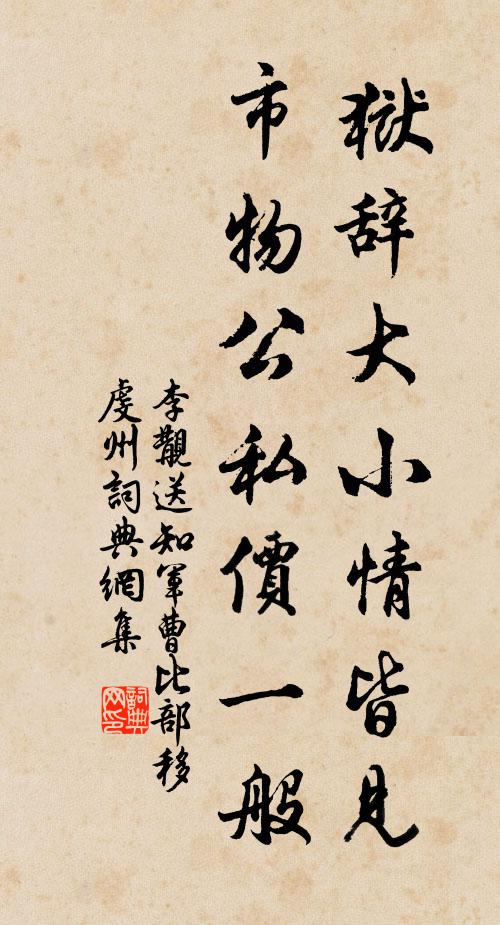 獄辞大小情皆見
市物公私價一般
李覯送知軍曹比部移
虔州詞典網集
詞典
网印